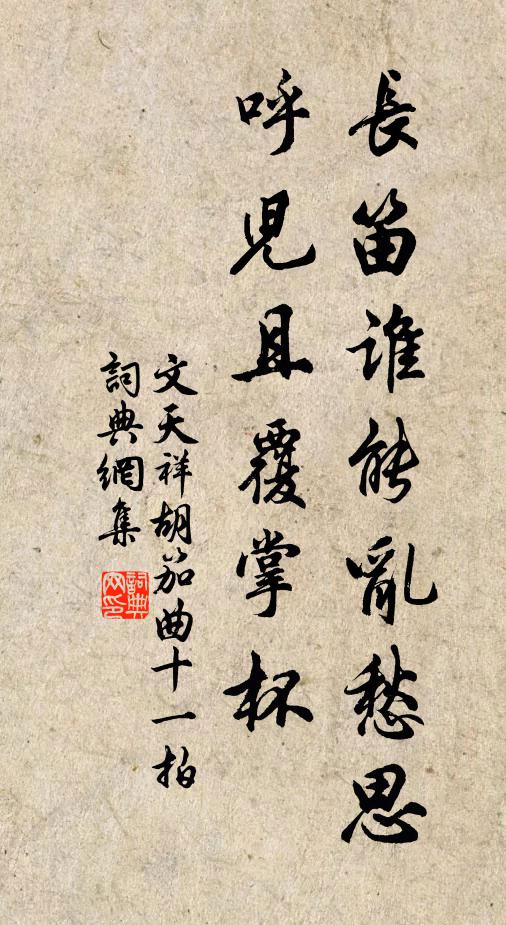 長笛誰能亂愁思
呼兒且覆掌杯
文天祥胡笳曲十一拍
詞典網集
詞典網印